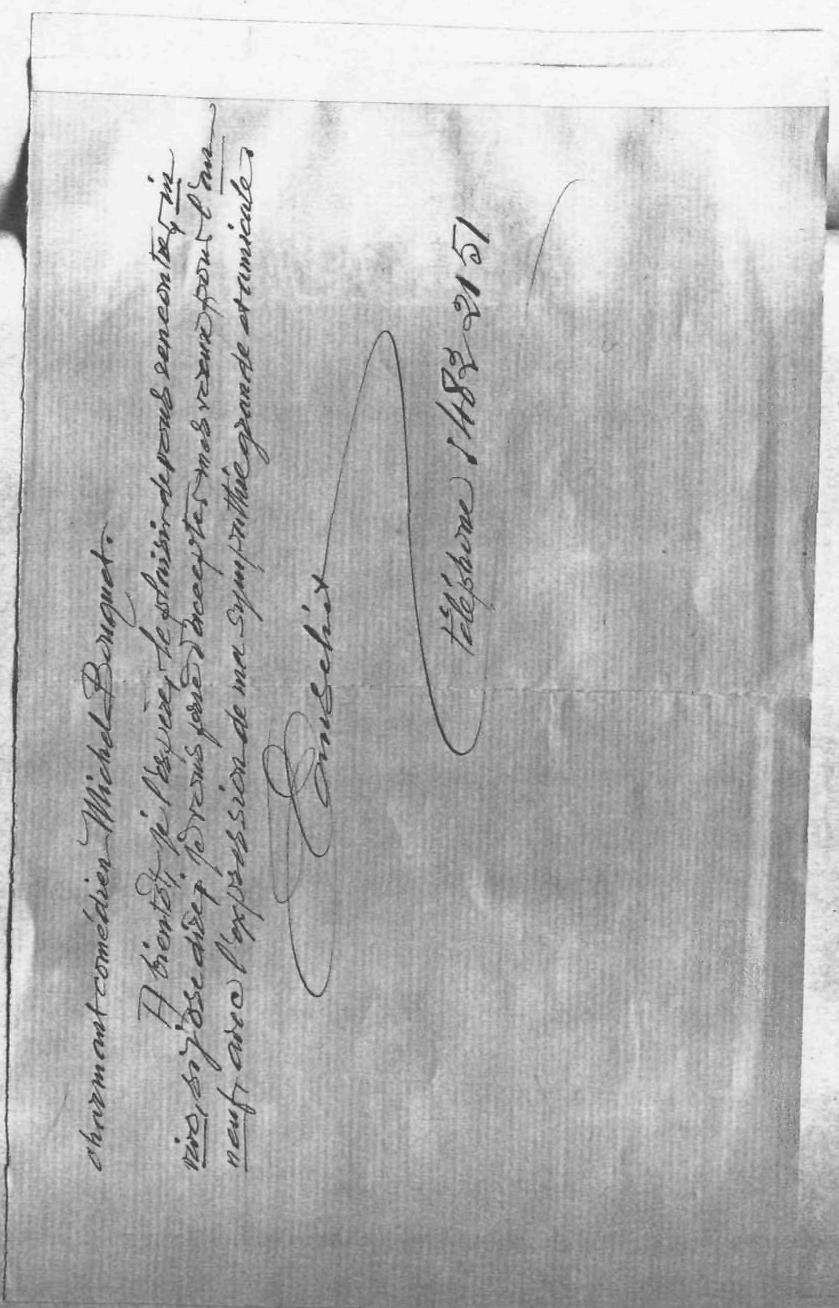 charmant comédien Michel Bouquet.
A bientôt, je l'espère, le plaisir de vous rencontrer, in
vivo, si j'ose dire; je vous prie d'accepter mes vœux pour l'an
neuf, avec l'expression de ma sympathie grande et amicale.
téléphone 1 483 21 51